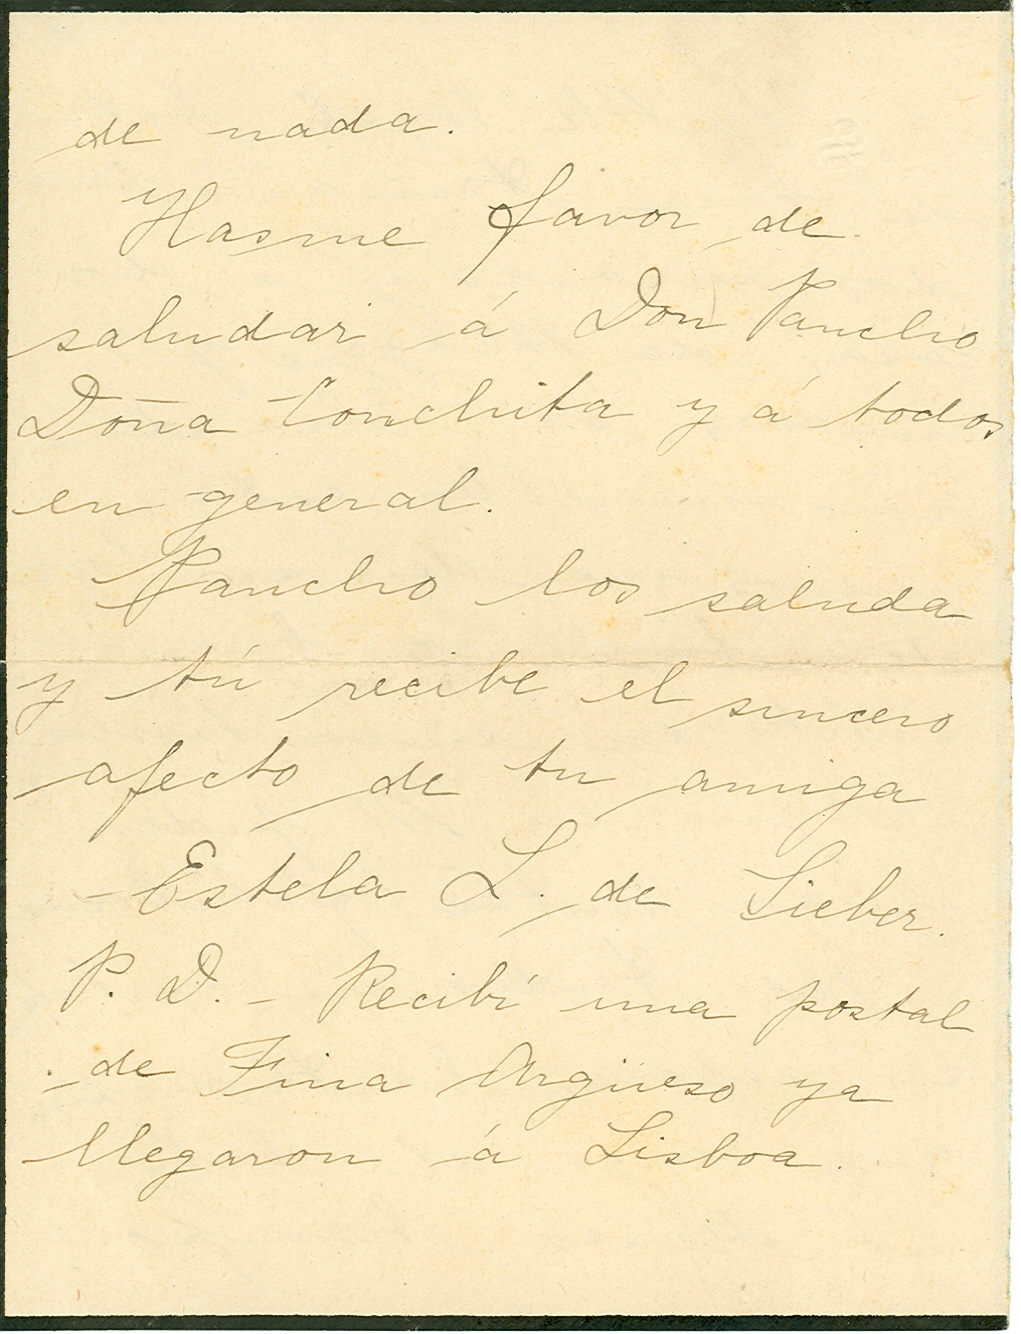 de nada.
Hasme favor de
saludar á Don Pancho
Doña Conchita y á todos
en general.
Pancho los saluda
y tú recibe el sincero
afecto de tu amiga
-Estela L. de Sieber.
P. D. - Recibí una postal
de Fina Argüeso ya
llegaron á Lisboa.